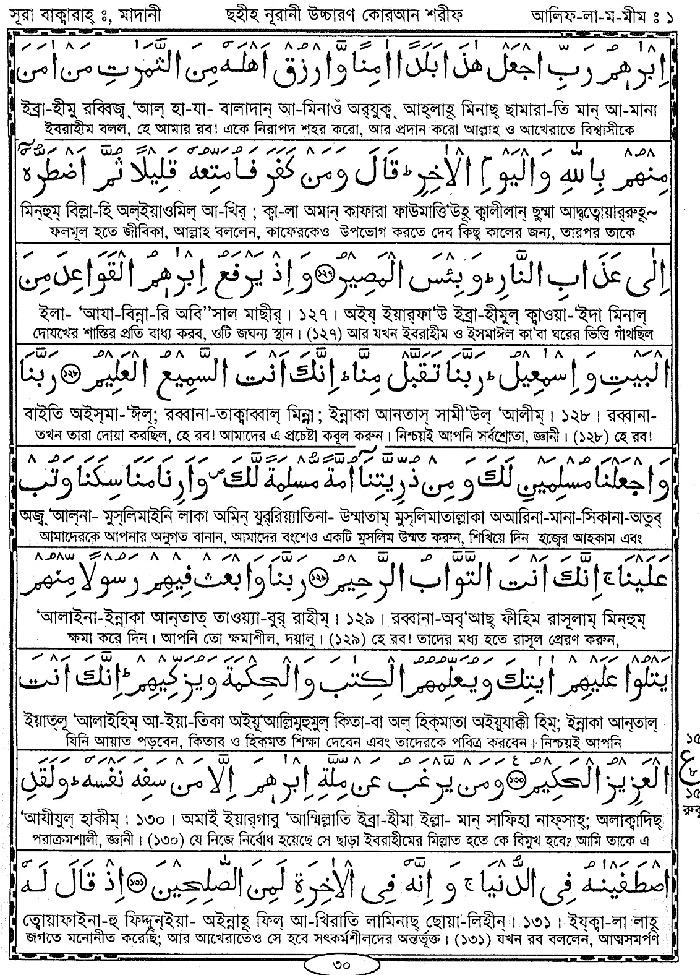 সূরা বাক্বারাহ্ ঃ, মাদানী ছহীহ নূরানী উচ্চারণ কোরআন শরীফ আলিফ-লা-ম-মীম ঃ ১
اِبْرٰهٖمُ رَبِّ اجْعَلْ هٰذَا بَلَدًا اٰمِنًا وَّارْزُقْ اَهْلَهٗ مِنَ الثَّمَرٰتِ مَنْ اٰمَنَ
ইব্রা-হীমু রব্বিজ্ব্ ‘আল্ হা-যা- বালাদান্ আ-মিনাওঁ অর্যুক্ব্ আহ্লাহূ মিনাছ্ ছামারা-তি মান্ আ-মানা
ইবরাহীম বলল, হে আমার রব! একে নিরাপদ শহর করো, আর প্রদান করো আল্লাহ ও আখেরাতে বিশ্বাসীকে
مِنْهُمْ بِاللّٰهِ وَالْيَوْمِ الْاٰخِرِ ؕ قَالَ وَمَنْ كَفَرَ فَاُمَتِّعُهٗ قَلِيْلًا ثُمَّ اَضْطَرُّهٗۤ
মিন্হুম্ বিল্লা-হি অল্ইয়াওমিল্ আ-খির্ ; ক্বা-লা অমান্ কাফারা ফাউমাত্তি‘উহূ ক্বালীলান্ ছুম্মা আদ্ব্ত্বোয়ার্রুহূ~
ফলমূল হতে জীবিকা, আল্লাহ বললেন, কাফেরকেও উপভোগ করতে দেব কিছু কালের জন্য, তারপর তাকে
اِلٰى عَذَابِ النَّارِ ؕ وَبِئْسَ الْمَصِيْرُ ﴿۱۲۶﴾ وَاِذْ يَرْفَعُ اِبْرٰهٖمُ الْقَوَاعِدَ مِنَ
ইলা- ‘আযা-বিন্না-রি অবি”সাল মাছীর্ । ১২৭ । অইয্ ইয়ারফা‘উ ইব্রা-হীমুল্ ক্বাওয়া-‘ইদা মিনাল্
দোযখের শাস্তির প্রতি বাধ্য করব, ওটি জঘন্য স্থান । (১২৭) আর যখন ইবরাহীম ও ইসমাঈল কা‘বা ঘরের ভিত্তি গাঁথছিল
الْبَيْتِ وَاِسْمٰعِيْلُ ؕ رَبَّنَا تَقَبَّلْ مِنَّا ؕ اِنَّكَ اَنْتَ السَّمِيْعُ الْعَلِيْمُ ﴿۱۲۷﴾ رَبَّنَا
বাইতি অইস্মা-‘ঈল্; রব্বানা-তাক্বাব্বাল্ মিন্না; ইন্নাকা আনতাস্ সামী‘উল্ ‘আলীম্ । ১২৮ । রব্বানা-
তখন তারা দোয়া করছিল, হে রব! আমাদের এ প্রচেষ্টা কবুল করুন । নিশ্চয়ই আপনি সর্বশ্রোতা, জ্ঞানী । (১২৮) হে রব!
وَاجْعَلْنَا مُسْلِمَيْنِ لَكَ وَمِنْ ذُرِّيَّتِنَاۤ اُمَّةً مُّسْلِمَةً لَّكَ ۪ وَاَرِنَا مَنَاسِكَنَا وَتُبْ
অজ্ব্ ‘আল্না- মুস্লিমাইনি লাকা অমিন্ যুর্রিয়্যাতিনা- উম্মাতাম্ মুস্লিমাতাল্লাকা অআরিনা-মানা-সিকানা-অতুব্
আমাদেরকে আপনার অনুগত বানান, আমাদের বংশেও একটি মুসলিম উম্মত করুন, শিখিয়ে দিন হজ্বের আহকাম এবং
عَلَيْنَا ۚ اِنَّكَ اَنْتَ التَّوَّابُ الرَّحِيْمُ ﴿۱۲۸﴾ رَبَّنَا وَابْعَثْ فِيْهِمْ رَسُوْلًا مِّنْهُمْ
‘আলাইনা-ইন্নাকা আন্তাত্ তাওয়্যা-বুর্ রাহীম্ । ১২৯ । রব্বানা-অব্‘আছ্ ফীহিম রাসূলাম্ মিন্হুম্
ক্ষমা করে দিন । আপনি তো ক্ষমাশীল, দয়ালু । (১২৯) হে রব! তাদের মধ্য হতে রাসূল প্রেরণ করুন,
يَتْلُوْا عَلَيْهِمْ اٰيٰتِكَ وَيُعَلِّمُهُمُ الْكِتٰبَ وَالْحِكْمَةَ وَيُزَكِّيْهِمْ ؕ اِنَّكَ اَنْتَ
ইয়াত্লূ ‘আলাইহিম্ আ-ইয়া-তিকা অইয়ু‘আল্লিমুহুমুল্ কিতা-বা অল্ হিক্মাতা অইয়ুযাক্কী হিম্; ইন্নাকা আন্তাল্
যিনি আয়াত পড়বেন, কিতাব ও হিকমত শিক্ষা দেবেন এবং তাদেরকে পবিত্র করবেন । নিশ্চয়ই আপনি
الْعَزِيْزُ الْحَكِيْمُ ﴿۱۲۹﴾ وَمَنْ يَّرْغَبُ عَنْ مِّلَّةِ اِبْرٰهٖمَ اِلَّا مَنْ سَفِهَ نَفْسَهٗ ؕ وَلَقَدِ
১৫
ع
৮
১৫
রুকু
‘আযীযুল্ হাকীম্ । ১৩০ । অমাই ইয়ার্গাবু ‘আম্মিল্লাতি ইব্রা-হীমা ইল্লা- মান্ সাফিহা নাফ্সাহ্; অলাক্বাদিছ্
পরাক্রমশালী, জ্ঞানী । (১৩০) যে নিজে নির্বোধ হয়েছে সে ছাড়া ইবরাহীমের মিল্লাত হতে কে বিমুখ হবে? আমি তাকে এ
اصْطَفَيْنٰهُ فِى الدُّنْيَا ۚ وَاِنَّهٗ فِى الْاٰخِرَةِ لَمِنَ الصّٰلِحِيْنَ ﴿۱۳۰﴾ اِذْ قَالَ لَهٗ
ত্বোয়াফাইনা-হু ফিদ্দুন্ইয়া- অইন্নাহূ ফিল্ আ-খিরাতি লামিনাছ্ ছোয়া-লিহীন্ । ১৩১ । ইয্ক্বা-লা লাহূ
জগতে মনোনীত করেছি; আর আখেরাতেও সে হবে সৎকর্মশীলদের অন্তর্ভূক্ত । (১৩১) যখন রব বললেন, আত্মসমর্পণ
৩০